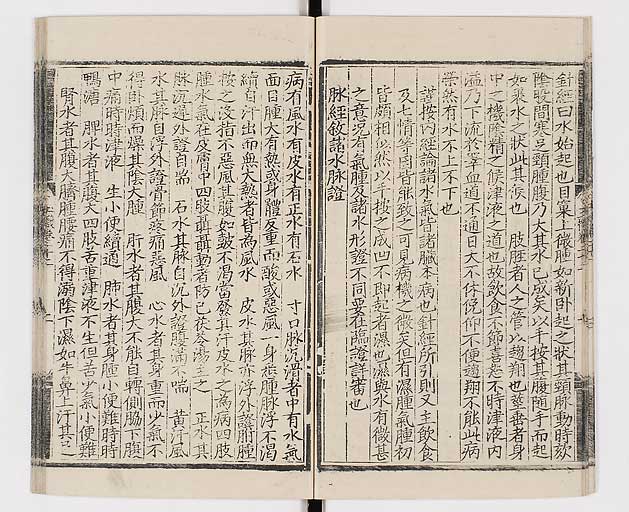 針經曰水始起也目窠上微腫如新卧起之狀其頸脉動時欬
陰股間寒足頸腫腹乃大其水已成矣以手按其腹隨手而起
如裹水之狀此其候也 肢脛者人之管以趨翔也莖垂者身
中之機陰精之候津液之道也故飲食不節喜怒不時津液內
溢乃下流於睾血道不通日大不休俛仰不便趨翔不能此病
榮然有水不上不下也
謹按內經論諸水氣皆諸臟本病也針經所引則又主飲食
及七情等因皆能致之可見病機之微矣但有濕腫氣腫初
皆頗相似然以手按之成凹不即起者濕也濕與水有微甚
之意況者氣腫及諸水形證不同要在臨證詳審也
脉經敘諸水脉證
病有風水有皮水有正水有石水 寸口脉沉滑者中有水氣
面目腫大有熱或身體反重而酸或惡風一身悉腫脉浮不渴
續自汗出而無大熱者皆為風水 皮水其脉亦浮外證胕腫
按之沒指不惡風其腹如皷不渴當發其汗皮水之為病四肢
腫水氣在皮膚中四肢聶聶動者防己茯苓湯主之 正水其
脉沉遲外證自喘 石水其脉自沉外證腹滿不喘 黃汗風
水其脉自浮外證骨節疼痛惡風 心水者其身重而少氣不
得卧煩而燥其陰大腫 肝水者其腹大不能自轉側脇下腹
中痛時時津液 生小便續通 肺水者其身腫小便難時時
鴨溏 脾水者其腹大四肢苦重津液不生但苦少氣小便難
腎水者其腹大臍腫腰痛不得溺陰下濕如牛鼻上汗其足